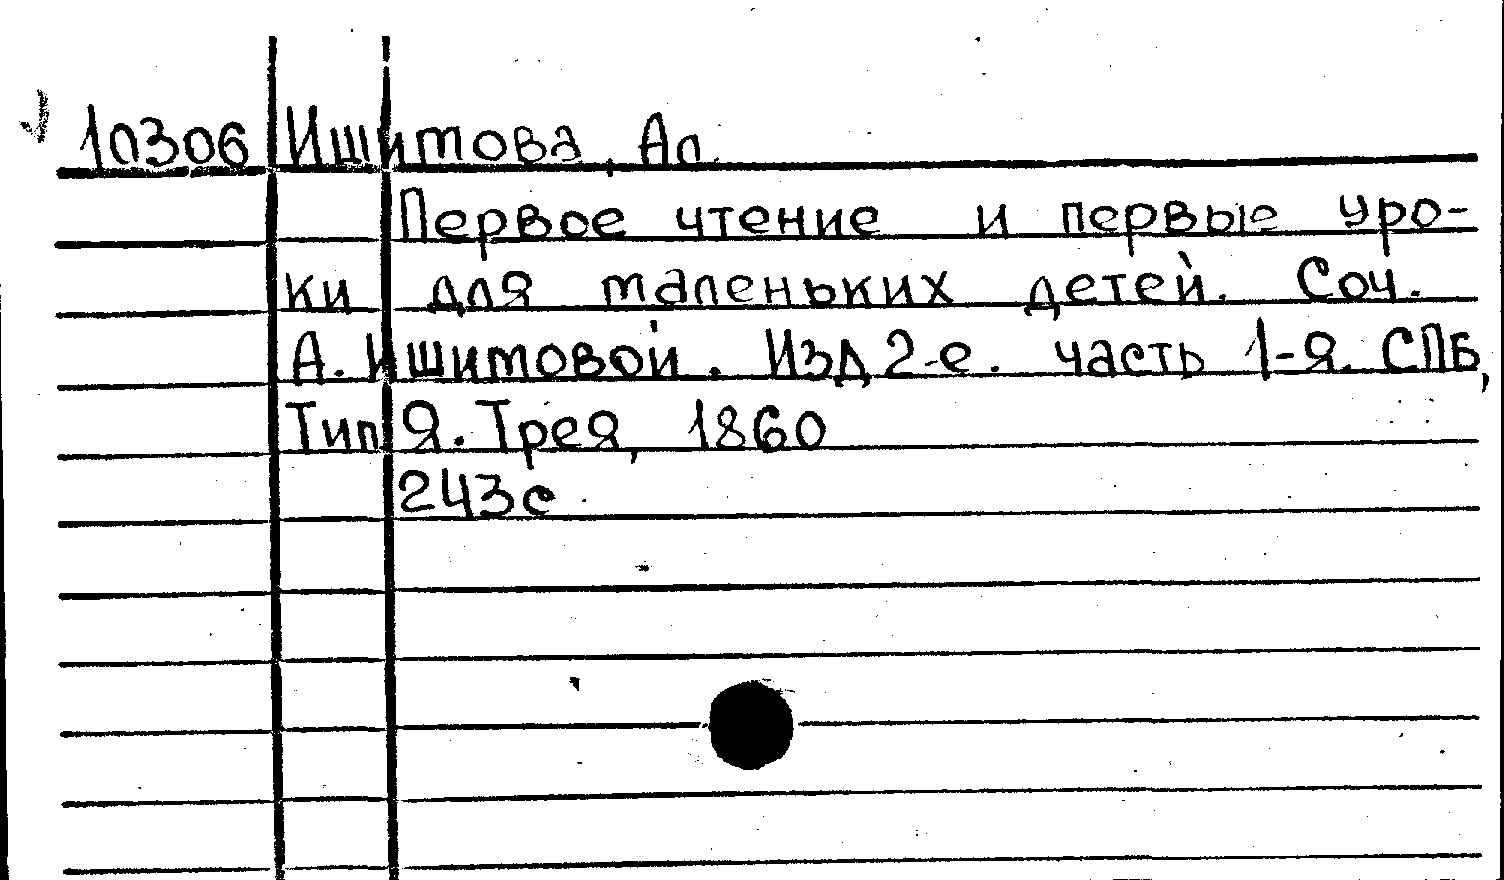 10306 Ишитова, Ал.
Первое чтение и первые уро-
ки для маленьких детей. Соч.
А. Ишитовой. Изд 2-е. часть 1-я. СПБ,
Тип Я. Трея, 1860
243с